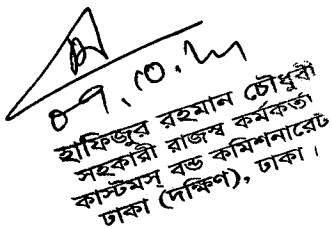 ০৭.১০.২৫
হাফিজুর রহমান চৌধুরী
সহকারী রাজস্ব কর্মকর্তা
কাস্টমস্ বন্ড কমিশনারেট
ঢাকা (দক্ষিণ), ঢাকা।